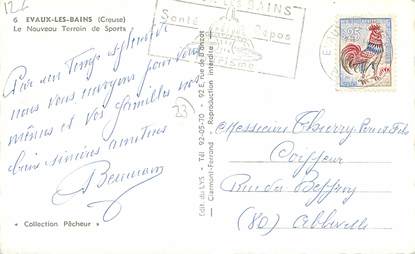 12 €
6 EVAUX-LES-BAINS (Creuse)
Le Nouveau Terrain de Sports
Par un Temps splendide
nous vous envoyons pour vous
mêmes et vos familles nos
bien sincères amitiés
Beaumain
« Collection Pêcheur »
23
Edit. du LYS - Tél. 92-05-70 - 92 E, rue de
Clermont-Ferrand - Reproduction interdite
EVAUX LES BAINS
Santé Repos
Tourisme
0,25
Messieurs Thierry Père et Fils
Coiffeur
Rue du Beffroy
(80) Abbeville